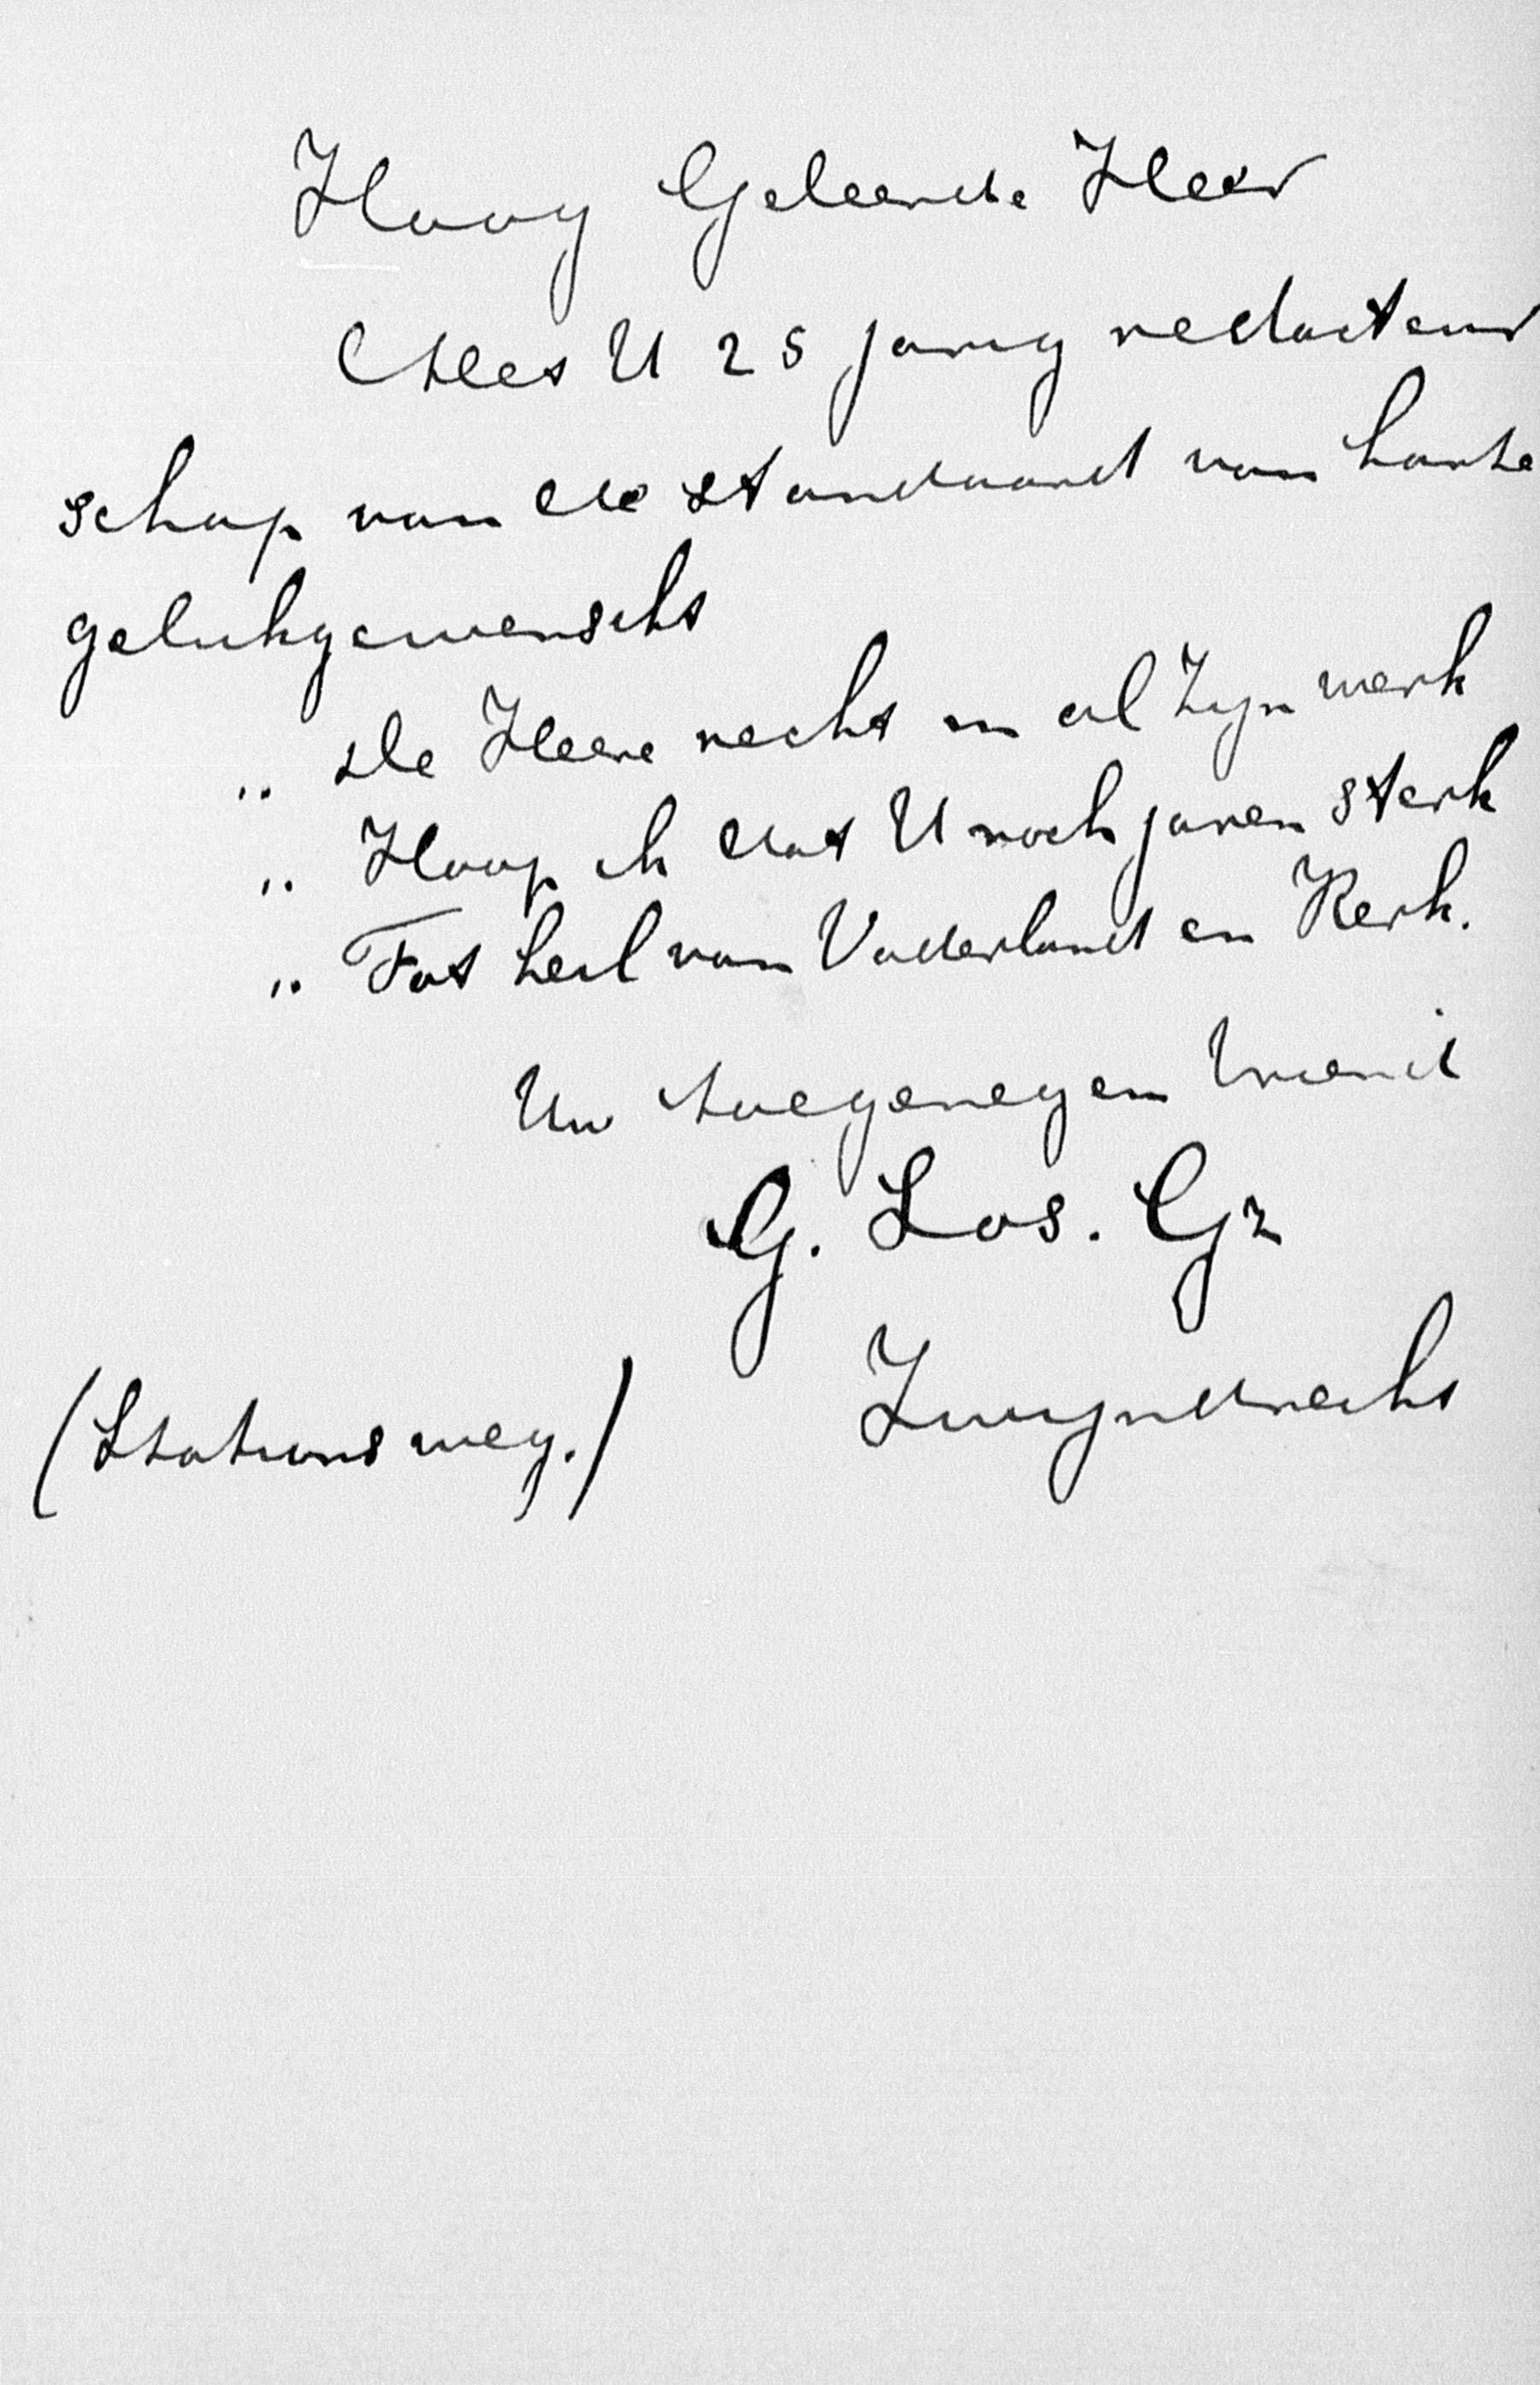 Hoog Geleerde Heer
Met U 25 jarig redacteur
schap van de Standaard van harte
gelukgewenscht
„ De Heere recht in al Zijn werk
„ Hoop ik dat U noch jaren sterk
„ Tot heil van Vaderland en Kerk.
Uw toegenegen Vriend
G. Los. Gz
Zwijndrecht
(Stationsweg.)